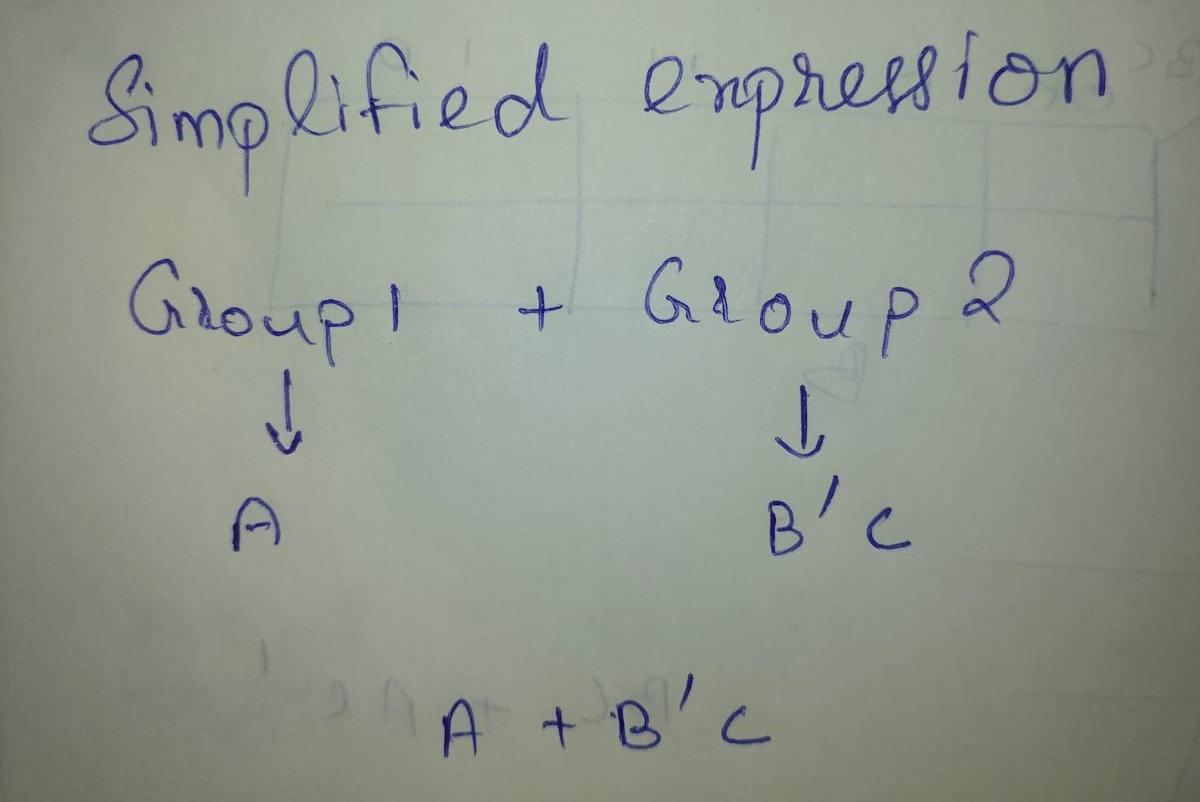 Simplified expression
Group 1 + Group 2
↓ ↓
A B'C
A + B'C